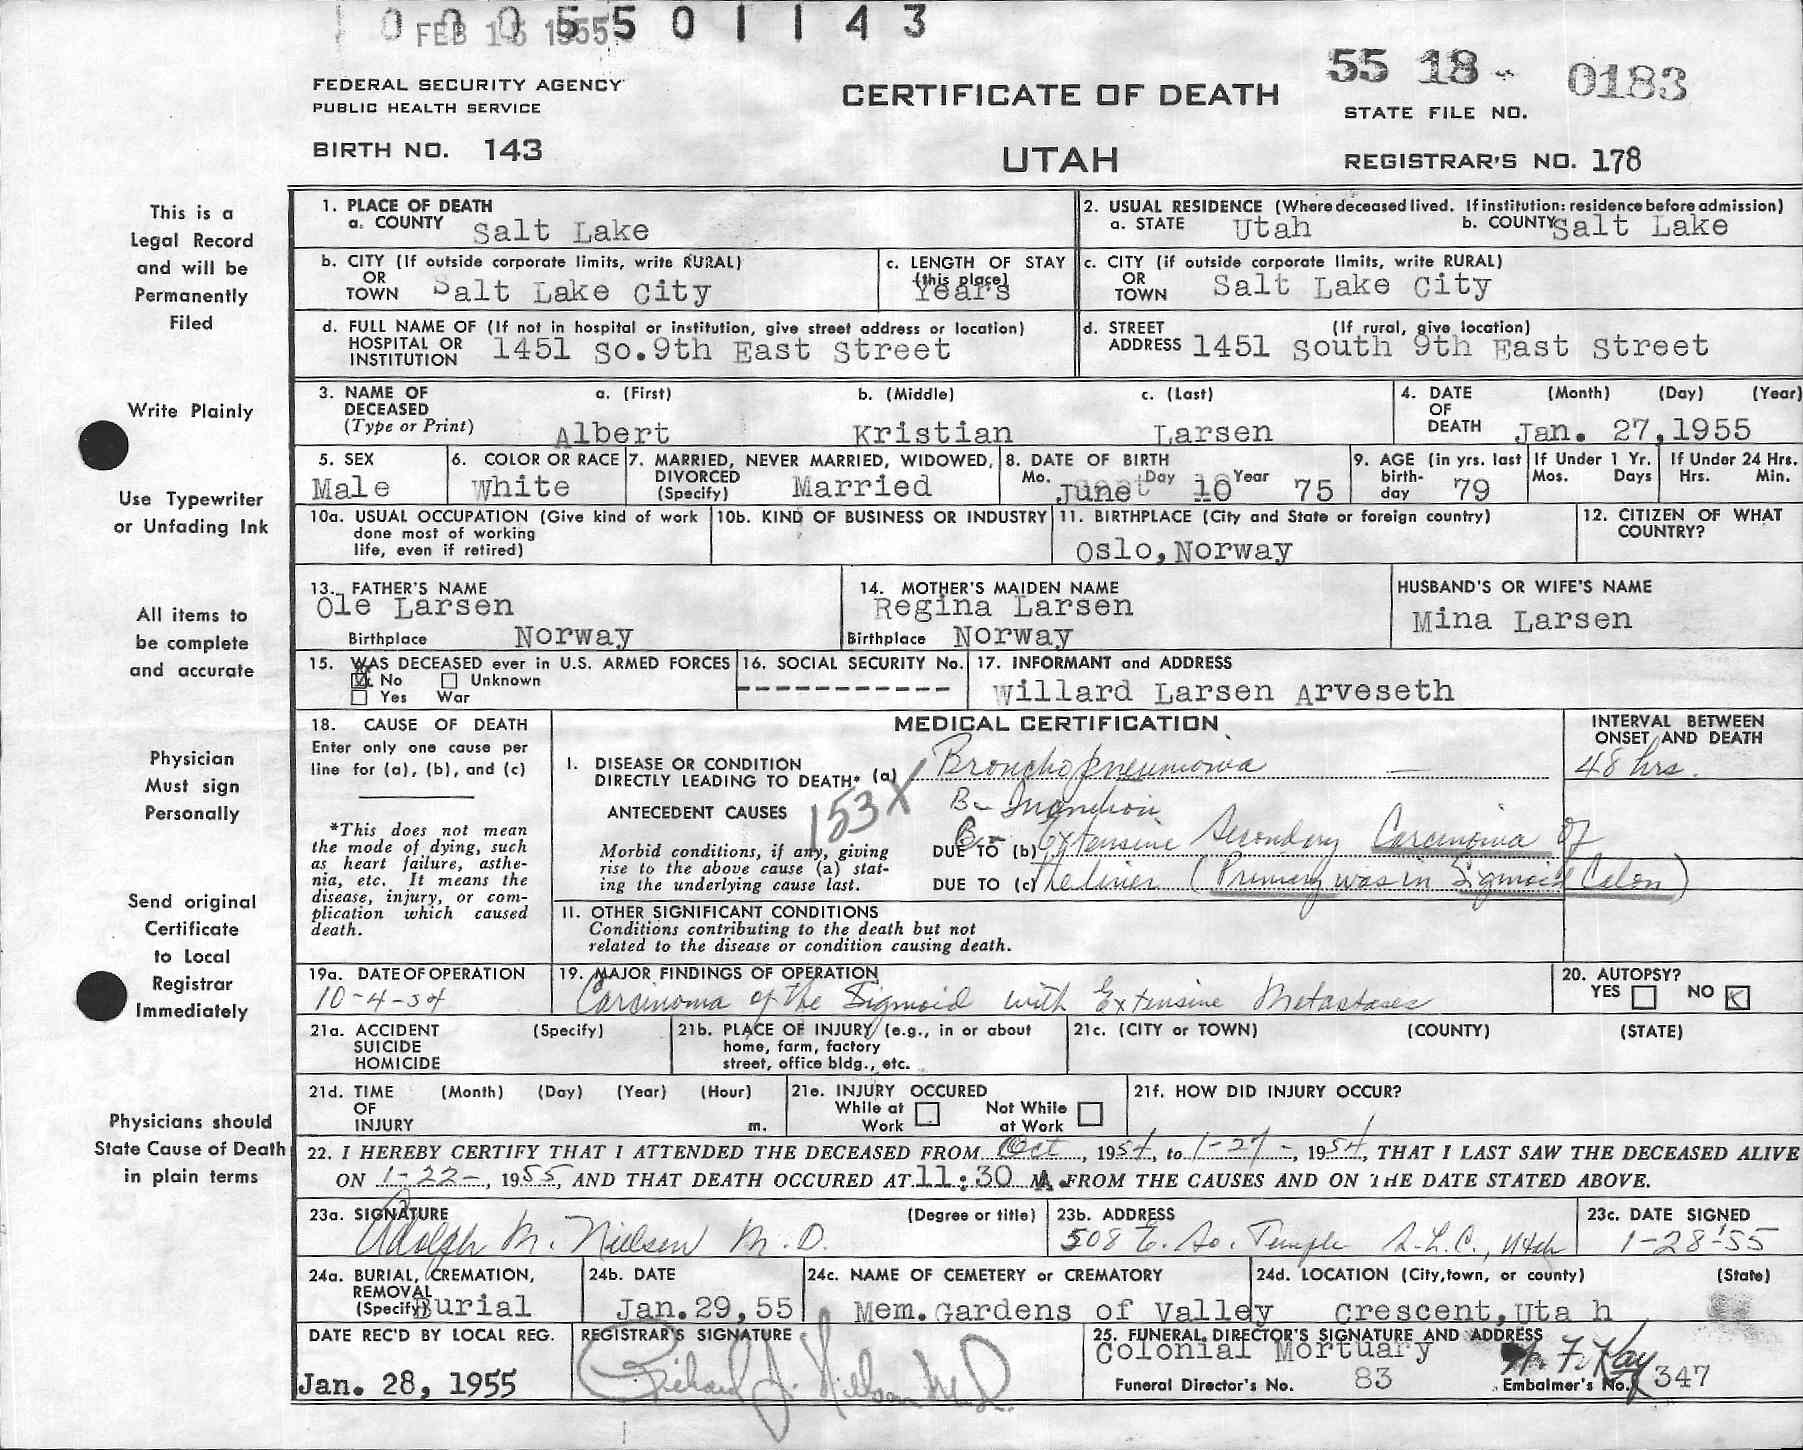 1 0 0 0 5 5 0 1 1 4 3
FEB 15 1955
55 18 - 0183
FEDERAL SECURITY AGENCY
PUBLIC HEALTH SERVICE
CERTIFICATE OF DEATH
STATE FILE NO.
BIRTH NO. 143
UTAH
REGISTRAR'S NO. 178
This is a
Legal Record
and will be
Permanently
Filed
Write Plainly
Use Typewriter
or Unfading Ink
All items to
be complete
and accurate
Physician
Must sign
Personally
Send original
Certificate
to Local
Registrar
Immediately
Physicians should
State Cause of Death
in plain terms
1. PLACE OF DEATH
a. COUNTY Salt Lake
2. USUAL RESIDENCE (Where deceased lived. If institution: residence before admission)
a. STATE Utah b. COUNTY Salt Lake
b. CITY (If outside corporate limits, write RURAL)
OR
TOWN Salt Lake City
c. LENGTH OF STAY
(this place)
Years
c. CITY (if outside corporate limits, write RURAL)
OR
TOWN Salt Lake City
d. FULL NAME OF (If not in hospital or institution, give street address or location)
HOSPITAL OR
INSTITUTION 1451 So. 9th East Street
d. STREET (If rural, give location)
ADDRESS 1451 South 9th East Street
3. NAME OF a. (First) b. (Middle) c. (Last)
DECEASED
(Type or Print) Albert Kristian Larsen
4. DATE (Month) (Day) (Year)
OF
DEATH Jan. 27, 1955
5. SEX
Male
6. COLOR OR RACE
White
7. MARRIED, NEVER MARRIED, WIDOWED,
DIVORCED
(Specify) Married
8. DATE OF BIRTH
Mo. June Day 10 Year 75
9. AGE (in yrs. last
birth-
day 79
If Under 1 Yr.
Mos. Days
If Under 24 Hrs.
Hrs. Min.
10a. USUAL OCCUPATION (Give kind of work
done most of working
life, even if retired)
10b. KIND OF BUSINESS OR INDUSTRY
11. BIRTHPLACE (City and State or foreign country)
Oslo, Norway
12. CITIZEN OF WHAT
COUNTRY?
13. FATHER'S NAME
Ole Larsen
Birthplace Norway
14. MOTHER'S MAIDEN NAME
Regina Larsen
Birthplace Norway
HUSBAND'S OR WIFE'S NAME
Mina Larsen
15. WAS DECEASED ever in U.S. ARMED FORCES
X No Unknown
Yes War
16. SOCIAL SECURITY No.
-----------
17. INFORMANT and ADDRESS
Willard Larsen Arveseth
18. CAUSE OF DEATH
Enter only one cause per
line for (a), (b), and (c)
*This does not mean
the mode of dying, such
as heart failure, asthe-
nia, etc. It means the
disease, injury, or com-
plication which caused
death.
MEDICAL CERTIFICATION
INTERVAL BETWEEN
ONSET AND DEATH
I. DISEASE OR CONDITION
DIRECTLY LEADING TO DEATH* (a) Bronchopneumonia — 48 hrs.
ANTECEDENT CAUSES 153X B- Inanition
Morbid conditions, if any, giving
rise to the above cause (a) stat-
ing the underlying cause last.
DUE TO (b) Extensive Secondary Carcinoma of
DUE TO (c) the liver (Primary was in Sigmoid Colon)
II. OTHER SIGNIFICANT CONDITIONS
Conditions contributing to the death but not
related to the disease or condition causing death.
19a. DATE OF OPERATION
10-4-54
19. MAJOR FINDINGS OF OPERATION
Carcinoma of the Sigmoid with Extensive Metastases
20. AUTOPSY?
YES NO X
21a. ACCIDENT (Specify)
SUICIDE
HOMICIDE
21b. PLACE OF INJURY (e.g., in or about
home, farm, factory
street, office bldg., etc.
21c. (CITY or TOWN) (COUNTY) (STATE)
21d. TIME (Month) (Day) (Year) (Hour)
OF
INJURY m.
21e. INJURY OCCURED
While at Not While
Work at Work
21f. HOW DID INJURY OCCUR?
22. I HEREBY CERTIFY THAT I ATTENDED THE DECEASED FROM Oct, 1954, to 1-27-, 1954, THAT I LAST SAW THE DECEASED ALIVE
ON 1-22-, 1955, AND THAT DEATH OCCURED AT 11:30 A M. FROM THE CAUSES AND ON THE DATE STATED ABOVE.
23a. SIGNATURE (Degree or title)
Adolph M. Nielsen M.D.
23b. ADDRESS
508 E. So. Temple S.L.C., Utah
23c. DATE SIGNED
1-28-55
24a. BURIAL, CREMATION,
REMOVAL
(Specify) Burial
24b. DATE
Jan. 29, 55
24c. NAME OF CEMETERY or CREMATORY
Mem. Gardens of Valley
24d. LOCATION (City, town, or county) (State)
Crescent, Uta h
DATE REC'D BY LOCAL REG.
Jan. 28, 1955
REGISTRAR'S SIGNATURE
25. FUNERAL DIRECTOR'S SIGNATURE AND ADDRESS
Colonial Mortuary
Funeral Director's No. 83 Embalmer's No. 347